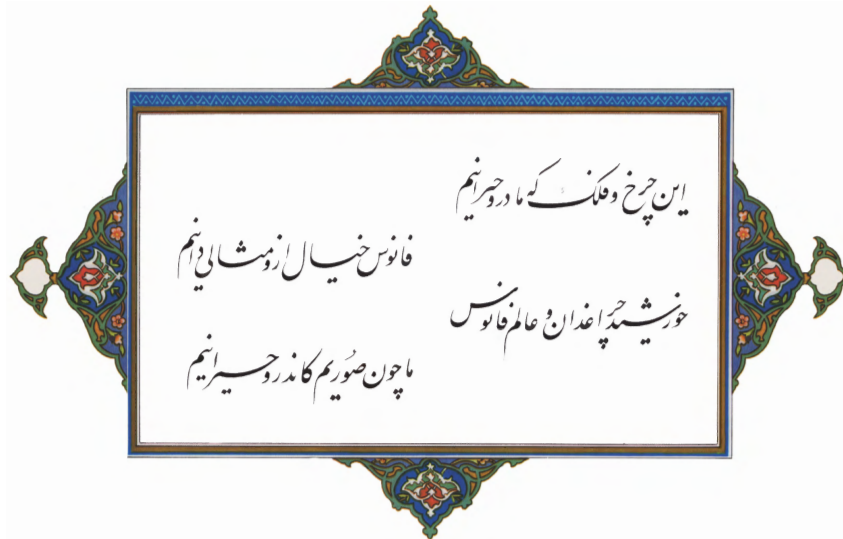 این چرخ و فلک که ما درو حیرانیم
فانوس خیال ازو مثالی دانیم
خورشید چراغدان و عالم فانوس
ما چون صُوَریم کاندرو حیرانیم